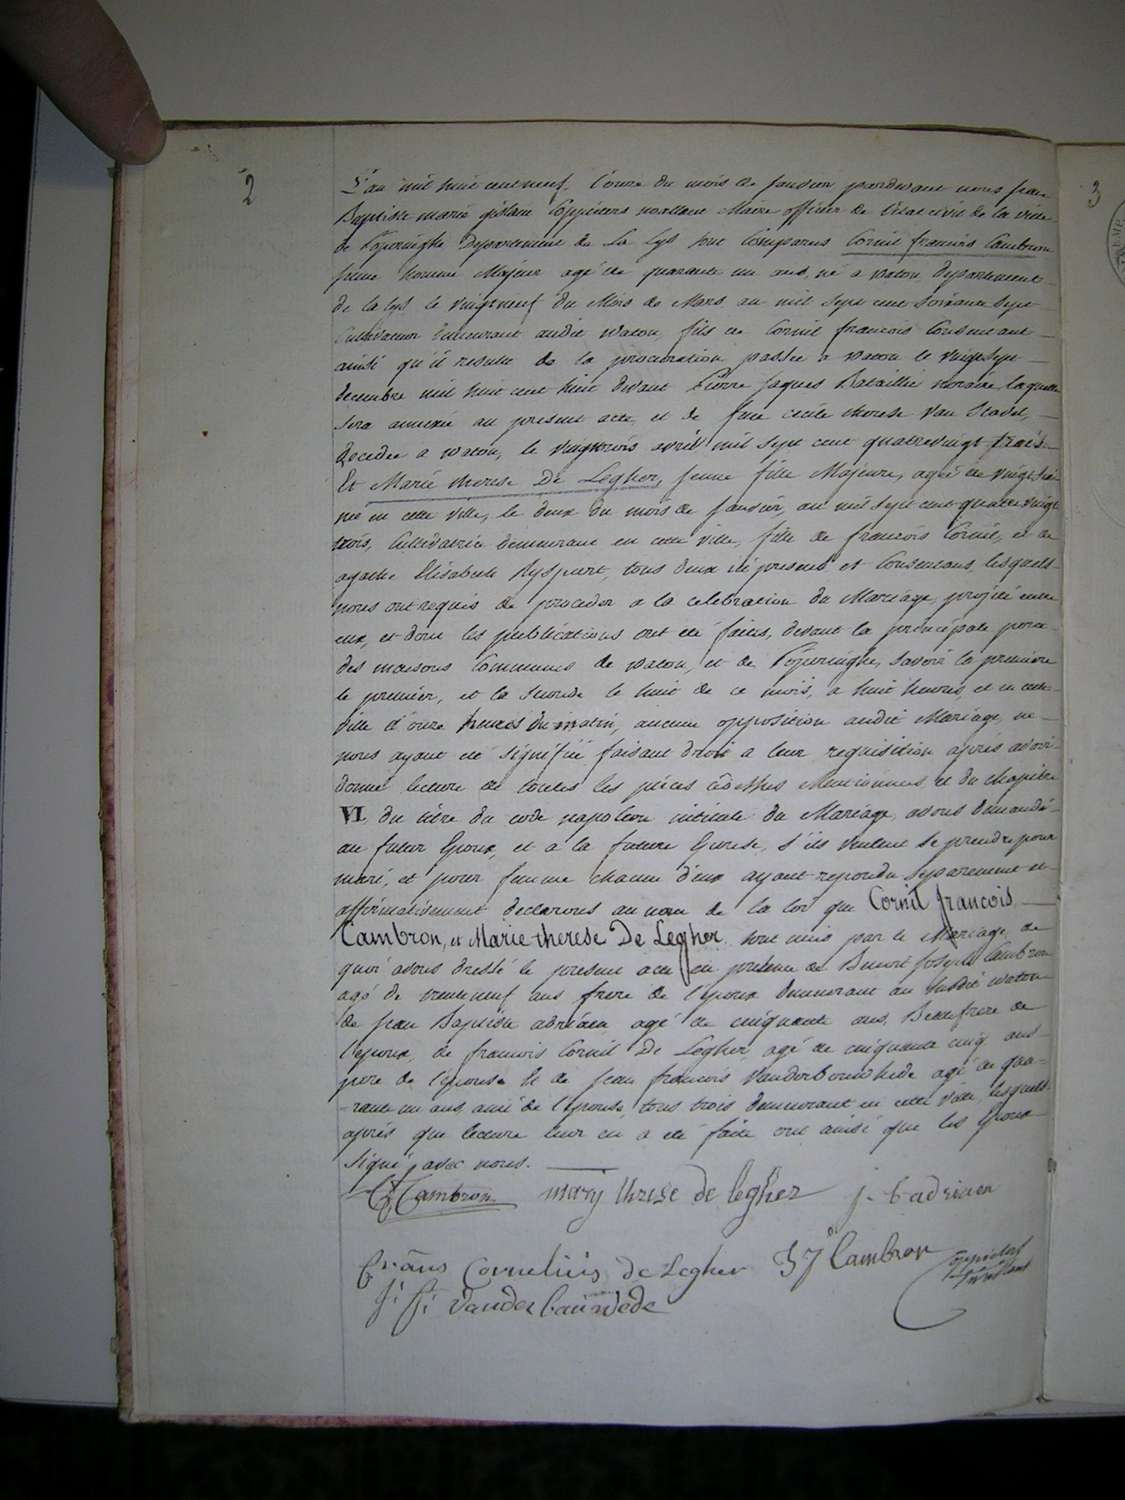 2
3
L'an mil huit cent neuf, l'onze du mois de Janvier pardevant nous Jean
Baptiste marie gislain Coppieters Maire officier de l'état civil de la ville
de Poperinghe Departement de La Lys sont Comparus Cornil francois Cambron
jeune homme Majeur agé de quarante un ans, né a watou, departement
de la lys le vingtneuf du Mois de Mars au mil sept cent soixante sept
Cultivateur demeurant audit watou, fils de Cornil francois Consentant
ainsi qu'il resulte de la procuration passée a watou le vingt sept
decembre mil huit cent huit devant Pierre Jaques Bataillie notaire laquelle
sera annexée au present acte, et de feue cecile therese Van Stavel,
decedée a watou, le vingttrois avril mil sept cent quatrevingt trois.
Et Marie therese De Legher, jeune fille Majeure, agée de vingt six
née en cette ville, le deux du mois de Janvier, au mil sept cent quatre vingt
trois, Cultivatrice demeurant en cette ville, fille de francois Cornil, et de
agathe Elisabeth Ryspert, tous deux ici presens et Consentans, lesquels
nous ont requis de proceder a la celebration du Mariage, projetté entre
eux, et dont les publications ont été faites, devant la principale porte
des maisons Communes de watou, et de Poperinghe, Savoir la premiere
le premier, et la seconde le huit de ce mois, a huit heures, et en cette
ville d'onze heures du matin, aucune opposition audit Mariage, ne
nous ayant eté signifiée faisant droit a leur requisition, après avoir
donné lecture de toutes les pieces cidessus Mentionnés, et du chapitre
VI, du titre du code napoleon intitulé du Mariage, avons demandé
au futur Epoux, et a la future Epouse, s'ils veulent se prendre pour
mari, et pour femme chacun d'eux ayant repondu separement et
affirmativement declarons au nom de la loi que Cornil francois
Cambron, et Marie therese De Legher, sont unis par le Mariage, de
quoi avons dressé le present acte en presence de Benoit Joseph Cambron
agé de trenteneuf ans frere de l'epoux demeurant au susdit watou
de Jean Baptiste adriaen agé de cinquante ans, Beaufrere de
l'epoux, de francois Cornil De Legher, agé de cinquante cinq ans
pere de l'epouse Et de Jean francois Vanderbouwhede agé de qua-
-rante un ans, ami de l'epouse, tous trois demeurant en cette ville, lesquels
après que lecture leur en a eté faite ont ainsi que les Epoux
signé avec nous.
Cambron mary threse de legher j. b adriaen
frans Cornelius de Legher Cambron
j. f. Vanderbauwede